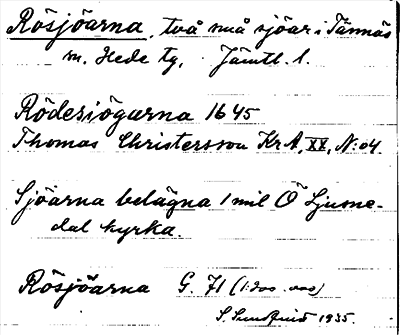 Rösjöarna, två små sjöar i Tännäs
sn. Hede tg. Jämtl. l.
Rödesiögarna 1645
Thomas Christersson Kr A, XX, N:o 4.
Sjöarna belägna 1 mil Ö Ljusne-
dal kyrka.
Rösjöarna G. 71 (1:200.000)
S. Sundquist 1935.